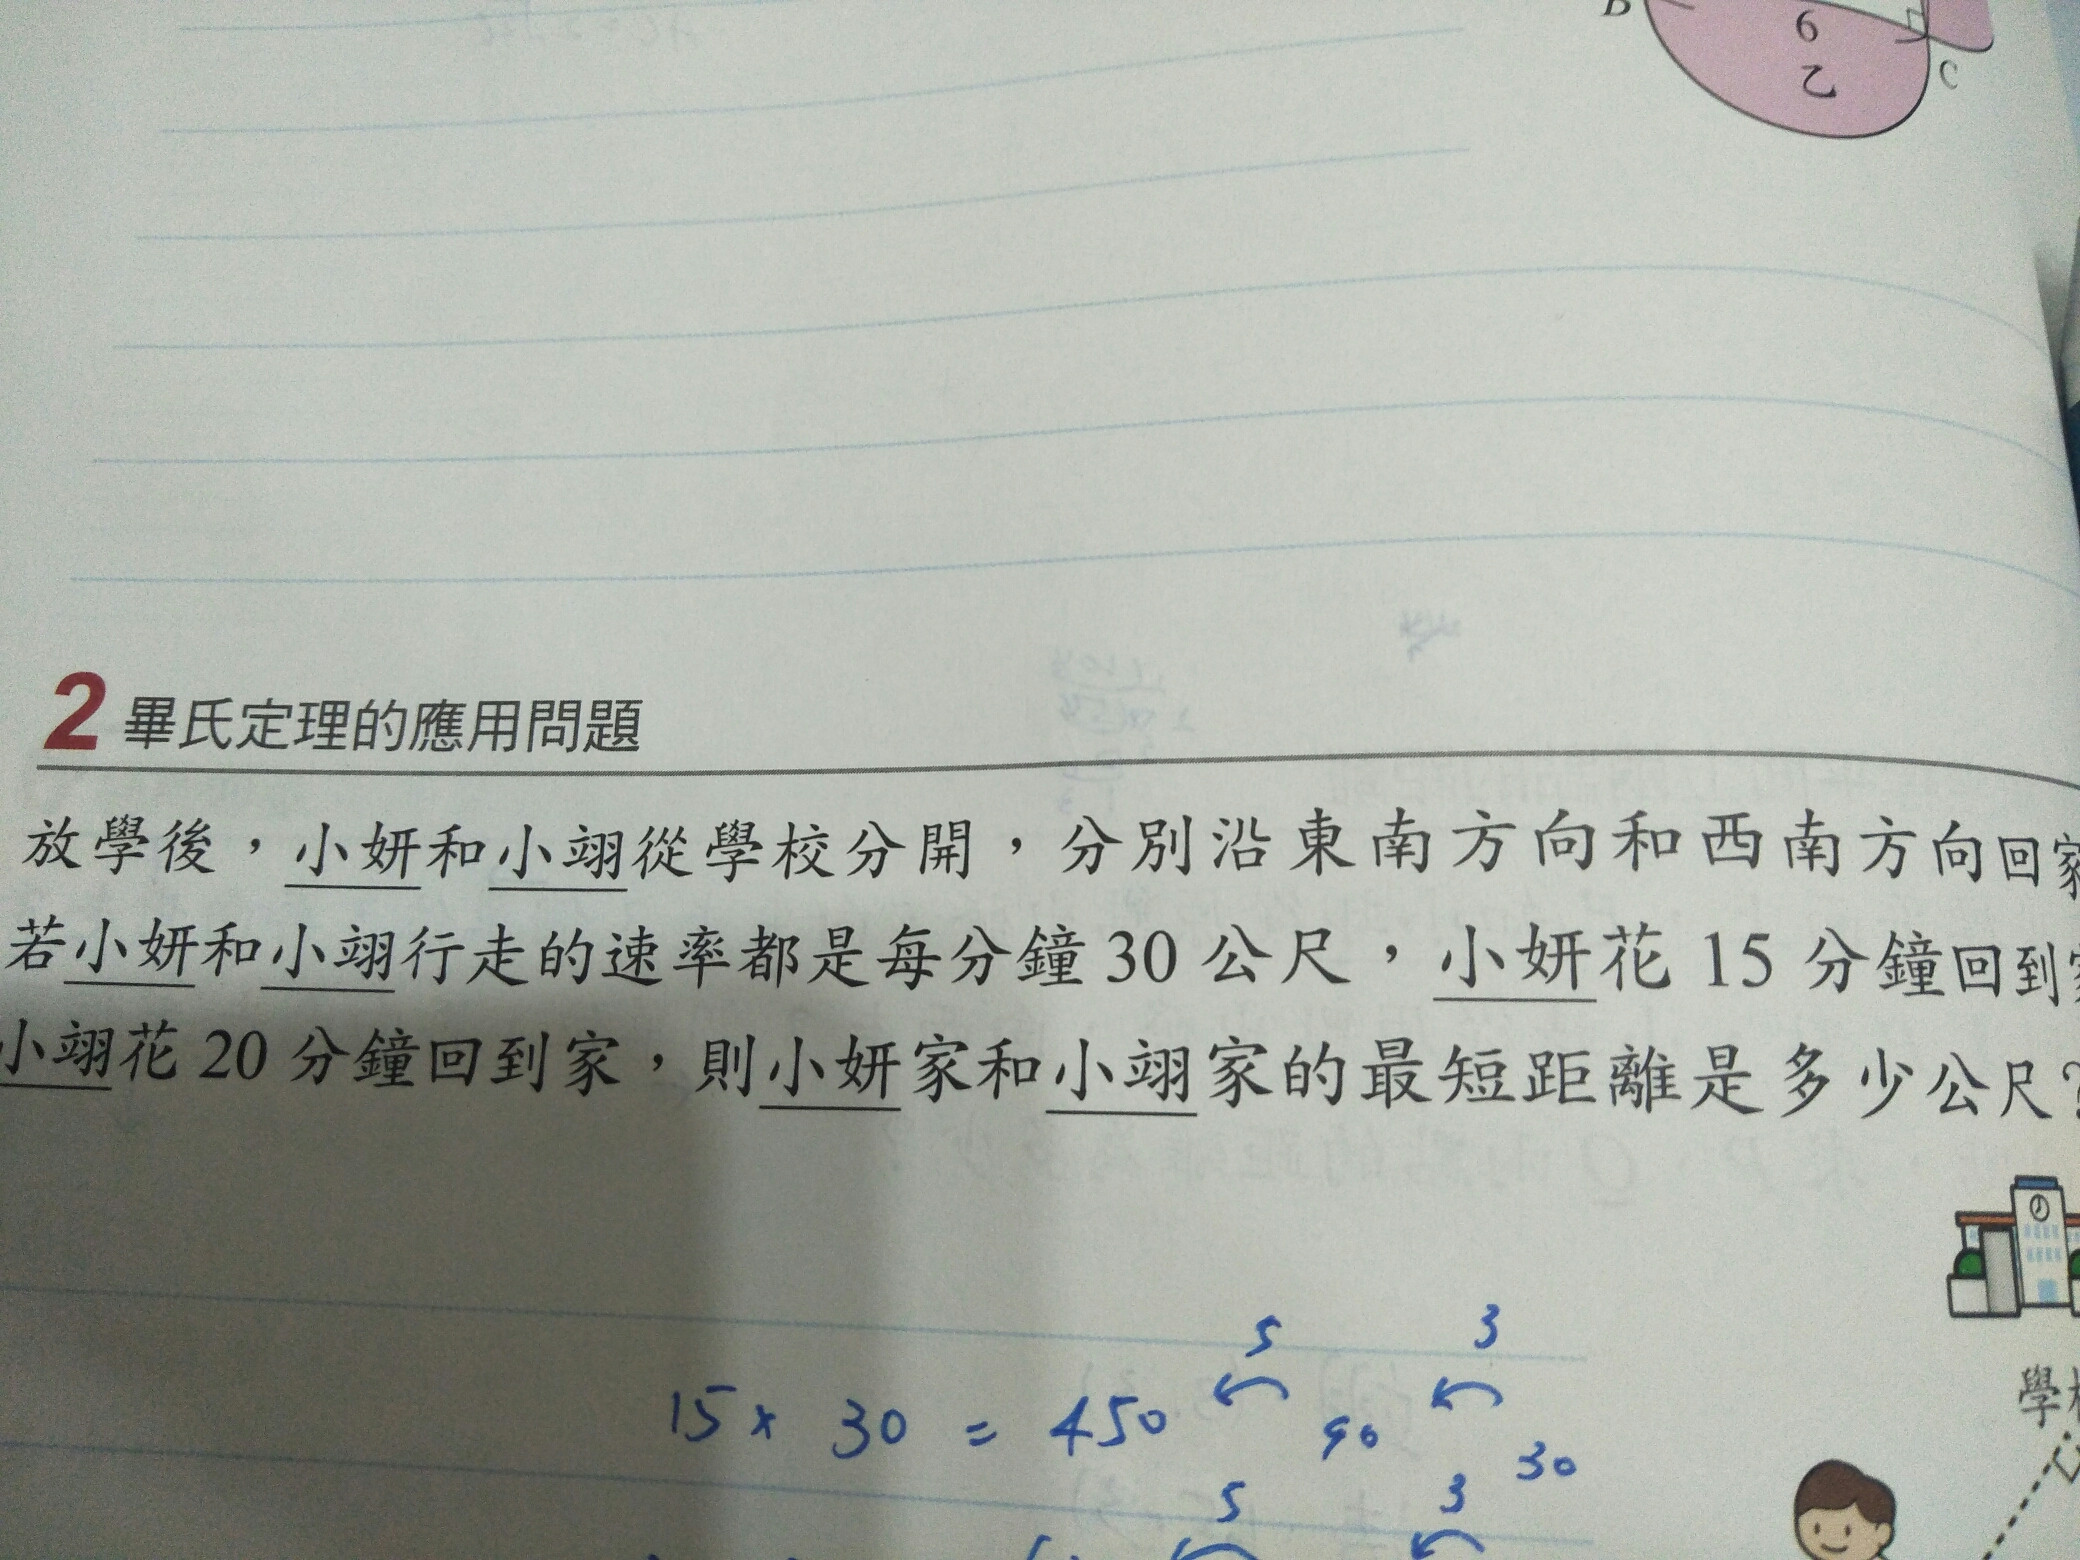 B
6
乙
C
2 畢氏定理的應用問題
放學後，小妍和小翊從學校分開，分別沿東南方向和西南方向回家
若小妍和小翊行走的速率都是每分鐘 30 公尺，小妍花 15 分鐘回到家
小翊花 20 分鐘回到家，則小妍家和小翊家的最短距離是多少公尺？
5 3
15 × 30 = 450 90 30
學校
5 3